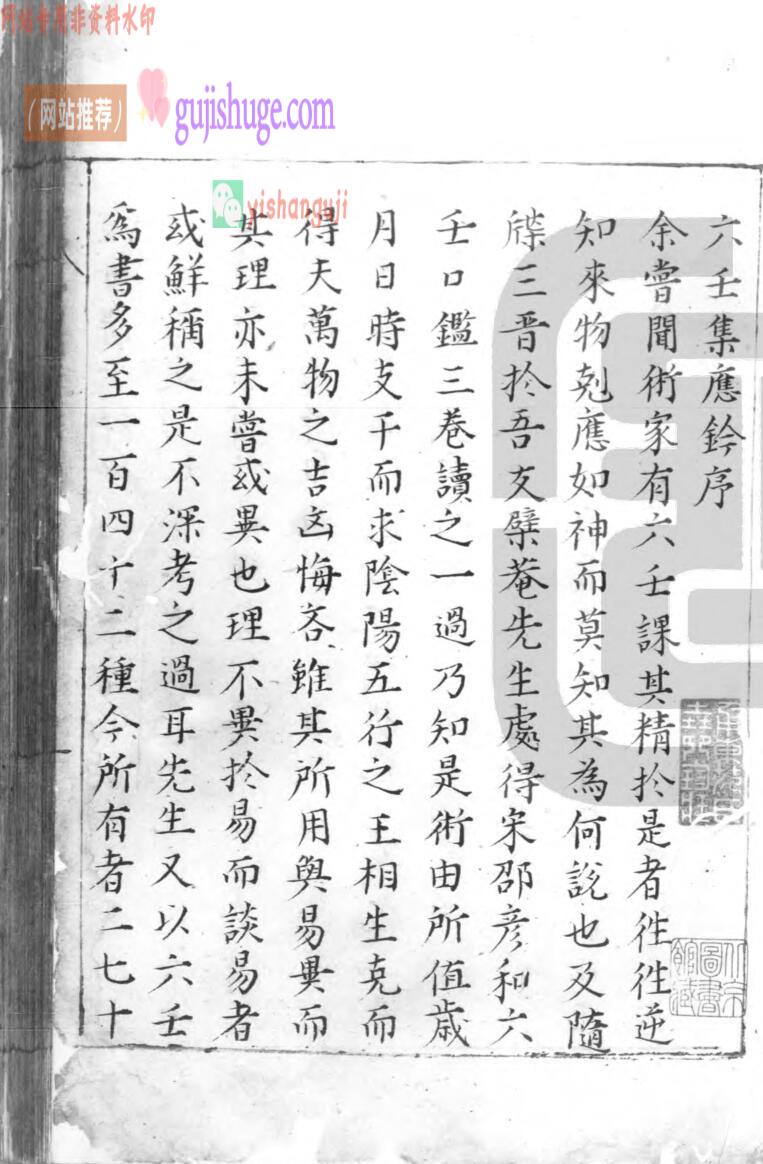 网站专用非资料水印
（网站推荐）
gujishuge.com
yishanguji
六壬集應鈐序
余嘗聞術家有六壬課其精於是者徃徃逆
知來物剋應如神而莫知其為何說也及隨
牒三晋於吾友檗菴先生處得宋邵彦和六
壬口鑑三卷讀之一過乃知是術由所值歲
月日時支干而求陰陽五行之王相生克而
得天萬物之吉凶悔吝雖其所用與易異而
其理亦未嘗或異也理不異於易而談易者
或鮮稱之是不深考之過耳先生又以六壬
為書多至一百四十二種今所有者二七十
北京圖書館藏